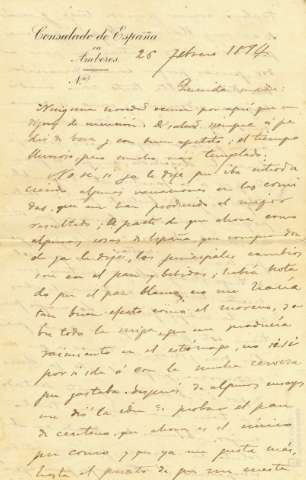 Consulado de España
en
Amberes. 26 Febrero 1874.
Nº
Querida madre:
Ninguna novedad ocurre por aquí que sea
digna de mención. De salud siempre a pe
dir de boca y con buen apetito; el tiempo
lluvioso pero mucho más templado.
No sé si ya le dije que iba introdu
ciendo algunas variaciones en las comi
das, que me han producido el mejor
resultado; Aparte de que ahora como
algunas cosas de España que
ya le dije, los principales cambios
son en el pan y bebidas; había nota
do que el pan blanco no me hacía
tan buen efecto como el moreno, so
bre todo la miga, que me producía
en el estómago, no sé si
por si sola o con la mucha cerveza
que gastaba; después de algunos ensayos
me dio la idea de probar el pan
de centeno, que ahora es el único
que como y que ya me gusta más,
hasta el punto de que me cuesta